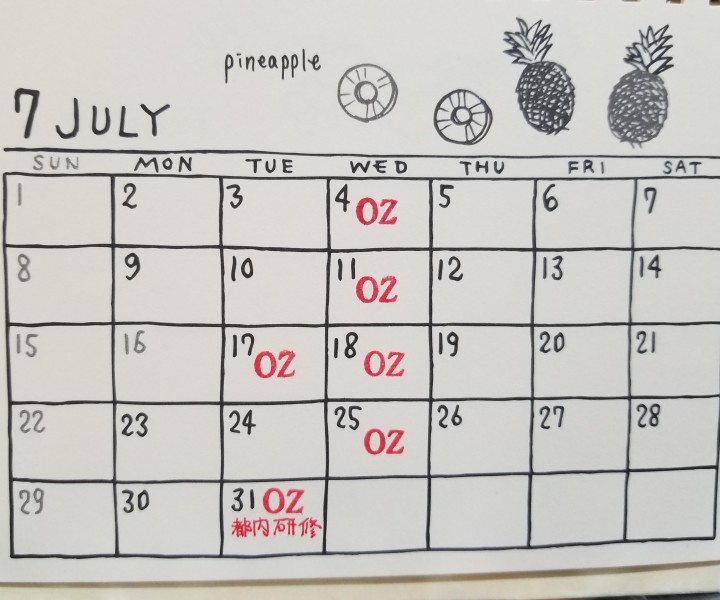 pineapple
7 JULY
SUN MON TUE WED THU FRI SAT
1 2 3 4 OZ 5 6 7
8 9 10 11 OZ 12 13 14
15 16 17 OZ 18 OZ 19 20 21
22 23 24 25 OZ 26 27 28
29 30 31 OZ
都内研修